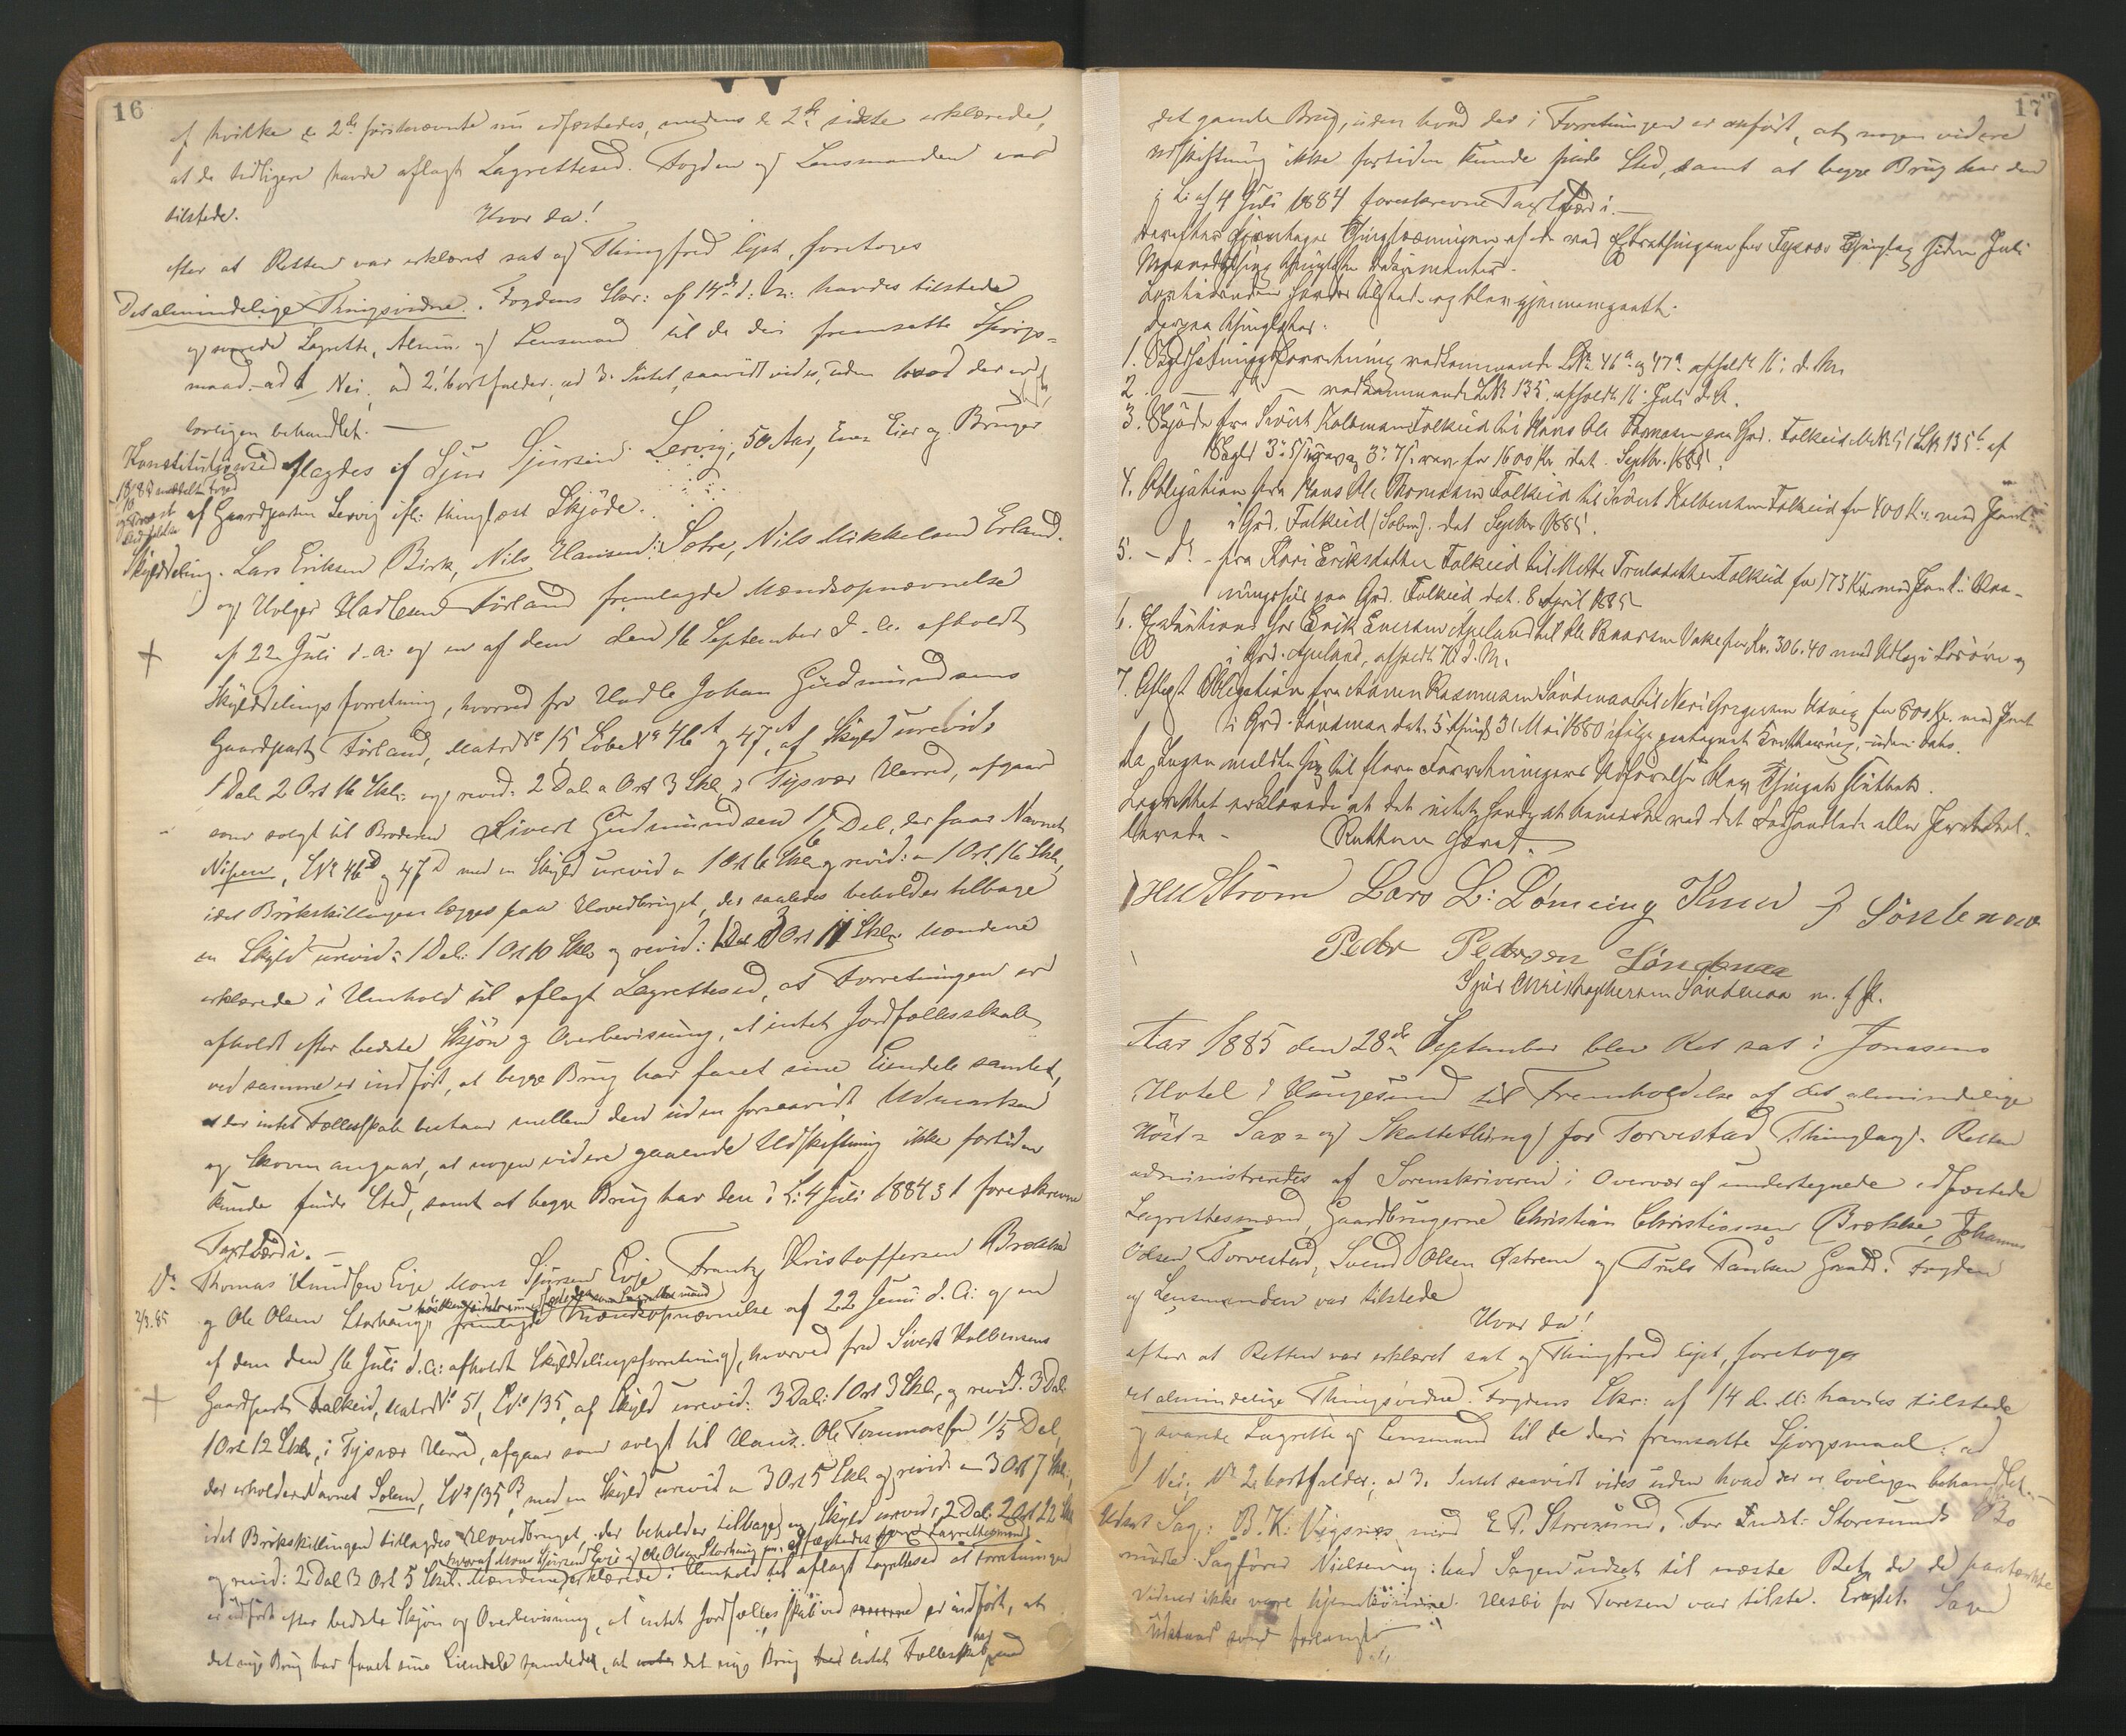 16
af hvilke de 2de förstnævnte nu edfæstedes, medens de 2de sidste erklærede,
at de tidligere havde aflagt Lagrettesed. Fogden og Lensmanden var
tilstede.
Hvor da!
efter at Retten var erklæret sat og Thingfred lyst, foretoges
Det almindelige Thingsvidne. Fogdens Skr: af 14de d: M: havdes tilstede
og svarede Lagrette, Almue og Lensmand til de deri fremsatte Spörgs-
maal: ad 1 Nei, ad 2. bortfalder, ad 3. Intet, saavidt vides, uden hvad der er
lovligen behandlet.
Konstitutionsed aflagdes af Sjur Sjursen Lervig, 50 Aar, Eier og Bruger
af Gaardparten Lervig ifl: thinglæst Skjöde.
Skylddeling. Lars Eriksen Birk, Nils Hansen Sotre, Nils Mikkelsen Erland
og Holger Hadlesen Förland fremlagde Mændsopnævnelse
af 22 Juli d. A: og en af dem den 16 September d. A. afholdt
Skylddelingsforretning, hvorved fra Hadle Johan Gudmundsens
Gaardpart Förland, Matr No 15, Löbe No 46A og 47A, af Skyld urevid:
1 Dal: 2 Ort 16 Skl: og revid: 2 Dal: 0 Ort 3 Skl i Tysvær Herred, afgaar
som solgt til Broderen Sivert Gudmundsen 1/6 Del, der faar Navnet
Nissen, LNo 46D og 47D med en Skyld urevid: 1 Ort 6 Skl og revid: 1 Ort 16 Skl,
idet Brökskillingen lægges paa Hovedbruget, der saaledes beholder tilbage
en Skyld urevid: 1 Dal: 1 Ort 10 Skl og revid: 1 Dal 3 Ort 11 Skl: Mændene
erklærede i Henhold til aflagt Lagrettesed, at Forretningen er
afholdt efter bedste Skjön og Overbevisning, at intet Jordfællesskab
ved samme er indfört, at begge Brug har faaet sine Eiendele samlet,
at der intet Fællesskab bestaar mellem dem uden forsaavidt Udmarken
og Skoven angaar, at nogen videre gaaende Udskiftning ikke fortiden
kunde finde Sted, samt at begge Brug har den i L: 4 Juli 1884 § 1 foreskrevne
Taxtværdi.
Do Thomas Knudsen Eije, Mons Sjursen Eije, Frantz Kristoffersen Brække
og Ole Olsen Storhaug fremlagde Mændsopnævnelse af 22 Juni d. A: og en
af dem den 16 Juli d. A: afholdt Skylddelingsforretning, hvorved fra Sivert Kolbensens
Gaardpart Falkeid, Matr No 51, LNo 135, af Skyld urevid: 3 Dal: 1 Ort 3 Skl, og revid: 3 Dal:
1 Ort 12 Skl, i Tysvær Herred, afgaar som solgt til Hans Ole Tommassen 1/5 Del,
der erholder Navnet Solem, LNo 135B, med en Skyld urevid: 3 Ort 5 Skl og revid: 3 Ort 7 Skl:,
idet Brökskillingen tillagdes Hovedbruget, der beholder tilbage en Skyld urevid: 2 Dal: 2 Ort 22 Skl
hvoraf Mons Sjursen Eije og Ole Olsen Storhaug
og revid: 2 Dal 3 Ort 5 Skil. Mændene erklærede i Henhold til aflagt Lagrettesed at Forretningen
er udfört efter bedste Skjön og Overbevisning, at intet Jordfællesskab ved samme er indfört, at
det nye Brug har faaet sine Eiendele samlede, at det nye Brug har intet Fællesskab med
17
det gamle Brug, uden hvad der i Forretningen er anfört, at nogen videre
Udskiftning ikke fortiden kunde finde Sted, samt at begge Brug har den
i L: af 4 Juli 1884 foreskrevne Taxtværdi.
Derefter foretoges Thinglæsningen af de ved Extrathingene for Tysvær Thinglag siden Juli
Maaned thinglæste Dokumenter.
Lovtidenden havdes tilstede og blev gjennemgaaet.
Derpaa thinglystes:
1. Skyldsætningsforretning vedkommende LNr. 46a og 47a afholdt 16 d. M.
2. — do — vedkommende LNr 135, afholdt 16 Juli d. A.
3. Skjöde fra Sivert Kolbensen Falkeid til Hans Ole Thomasen paa Grd. Falkeid MNr. 51 LNr 135b af
Skyld 3 Ort 5 Skl urev. og 3 Ort 7 Skl rev. for 1600 Kr. dat. Septbr. 1885.
4. Obligation fra Hans Ole Thomasen Falkeid til Sivert Kolbensen Falkeid for 400 Kr. med Pant
i Grd. Falkeid (Solem). dat Septbr 1885.
5. — do — fra Kari Eriksdatter Falkeid til Mette Trulsdatter Falkeid for 173 Kr med Pant i Vaa-
ningshus paa Grd. Falkeid dat. 8 April 1885
6. Exekution hos Erik Enersen Apeland til Ole Baardsen Vake for Kr. 306.40 med Udlæg i Lösöre og
i Grd. Apeland, afholdt d. M.
7. Aflyst Obligation fra Rasmussen Söndenaa til Neri Gregersen for 800 Kr. med Pant
i Grd. Söndenaa dat. 5 thingl. 31 Mai 1880 ifölge paategnet Kvittering, uden Dato.
Da Ingen meldte sig til flere Forretningers Udförelse blev Thinget sluttet.
Lagrettet erklærede at det intet havde at bemærke ved det Forhandlede eller Protokol-
lerede. Retten hævet.
Ström Lars L: Löming Knud J Söndenaa
Peder Pedersen Söndenaa
Sjur Christophersen Söndenaa m. f. P.
Aar 1885 den 28de September blev Ret sat i Jonasens
Hotel i Haugesund til Fremholdelse af det almindelige
Höst- Sag- og Skattething for Torvestad Thinglag. Retten
administreredes af Sorenskriveren i Overvær af undertegnede edfæstede
Lagrettesmænd, Gaardbrugerne Christian Christiansen Brække, Johannes
Olsen Torvestad, Svend Olsen Östrem og Truls Paulsen Haade. Fogden
og Lensmanden var tilstede
Hvor da!
efter at Retten var erklæret sat og Thingfred lyst, foretoges
det almindelige Thingsvidne. Fogdens Skr: af 14 d. M: havdes tilstede
og svarede Lagrette og Lensmand til de deri fremsatte Spörgsmaal: ad
1 Nei, No 2. bortfalder, ad 3. Intet saavidt vides uden hvad der er lovligen behandlet.
Udsat Sag: B. K. Vigsnes mod E. P. Storesund. For Indst: Storesund
mödte Sagförer Nielsen og: bad Sagen udsat til næste Ret, da de paatænkte
Vidner ikke vare hjemkomne. for Toresen var tilstede. Eragtet. Sagen
udstaar som forlangt